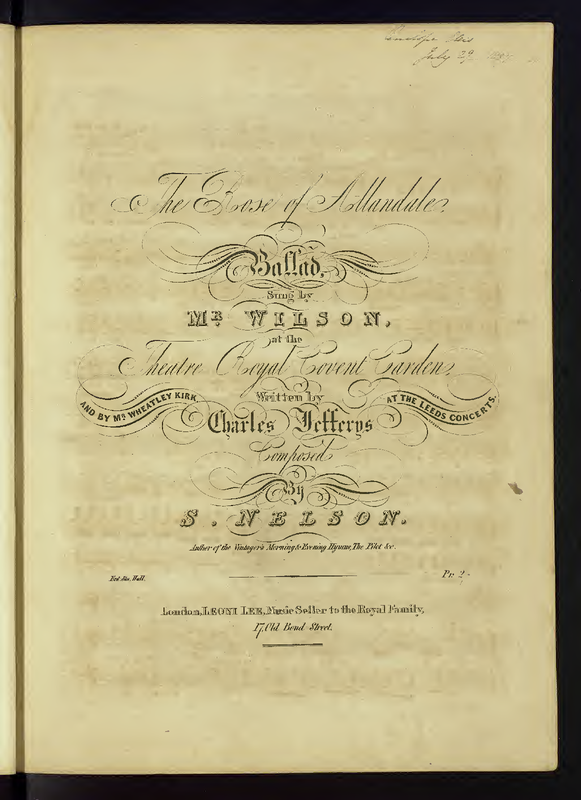 July 29
The Rose of Allandale.
Ballad,
Sung by
MR. WILSON,
at the
Theatre Royal Covent Garden.
AND BY MR. WHEATLEY KIRK,
Written by
AT THE LEEDS CONCERTS.
Charles Jefferys
Composed
By
S. NELSON.
Author of the Vintager's Morning & Evening Hymns, The Pilot &c.
Ent. Sta. Hall.
Pr. 2
London, LEONI LEE, Music Seller to the Royal Family,
17, Old Bond Street.